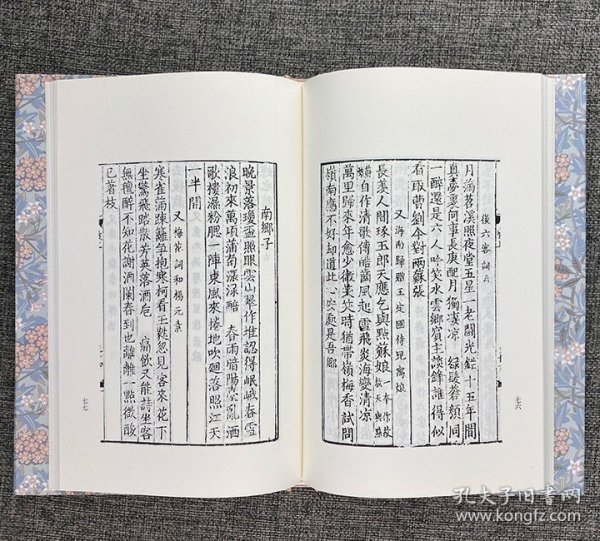 後六客詞云
月滿苕溪照夜堂五星一老鬬光鋩十五年間
真夢裏何事長庚配月獨凄凉 綠鬢蒼顏同
一醉還是六人吟笑水雲鄉賓主談鋒誰得似
看取曹劉今對兩蘇張
又海南歸贈王定國侍兒寓娘
長羨人間琢玉郎天應乞與點蘇娘 一本作故教天與點
自作清歌傳皓齒風起雪飛炎海變清凉
萬里歸來年愈少微笑笑時猶帶嶺梅香試問
嶺南應不好却道此心安處是吾鄉
七六
南鄉子
晚景落瓊盃照眼雲山翠作堆認得岷峨春雪
浪初來萬頃蒲萄漲淥醅 春雨暗陽臺亂洒
歌樓濕粉腮一陣東風來捲地吹廻落照江天
一半開
又梅花詞和楊元素
寒雀滿踈籬爭抱寒柯看玉蕤忽見客來花下
坐驚飛踏散芳英落酒巵 痛飲又能詩坐客
無氊醉不知花謝酒闌春到也離離一點微酸
已著枝
七七
孔夫子旧书网
www.kongfz.com